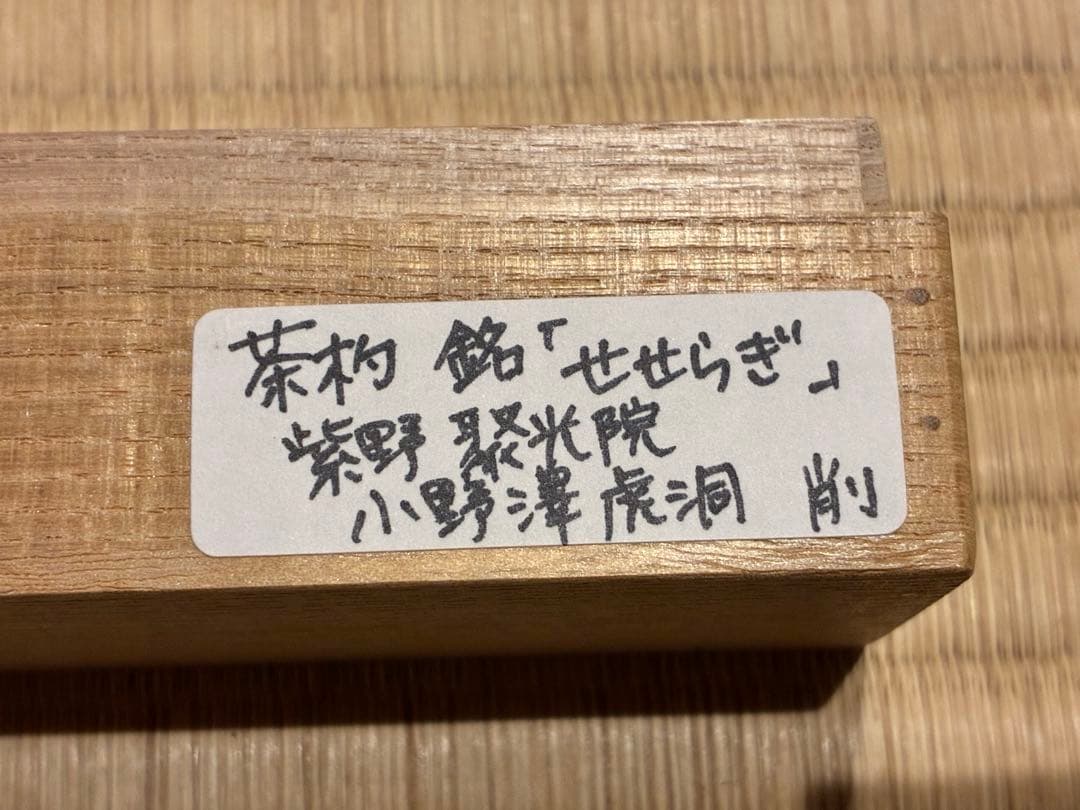 茶杓 銘「せせらぎ」
紫野 聚光院
小野澤 虎洞 削